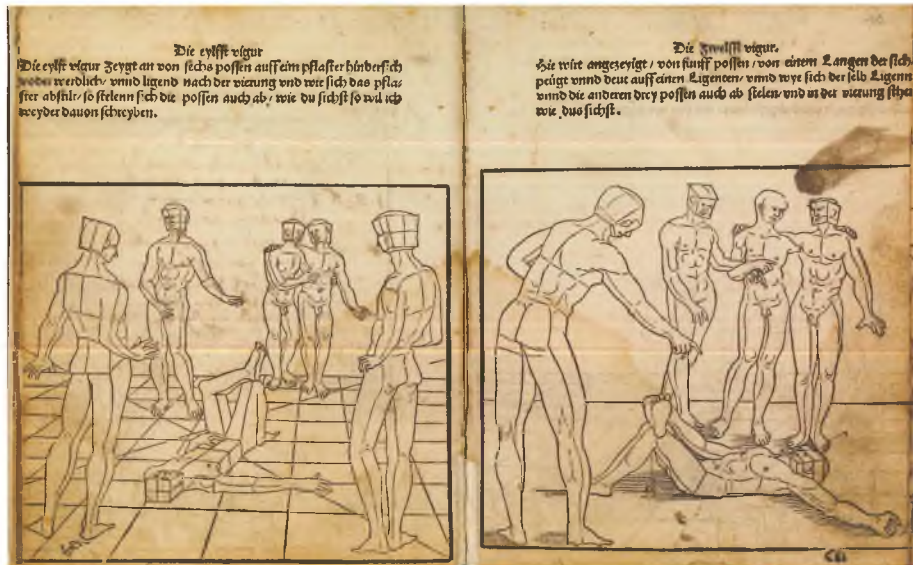 Die eylfft vigur
Die eylfft vigur zeygt an von sechs possen auff eim pflaster hindersich
werdlich/ vnnd ligend nach der vierung vnd wie sich das pfla-
ster abstilt/ so stelenn sich die possen auch ab/ wie du sichst so wil ich
weyder dauon schreyben.
Die vigur.
Hie wirt angezeygt/ von funff possen/ von einem Langen der sich
peügt vnnd deut auff einen Ligenten/ vnnd wye sich der selb Ligennt
vnnd die anderen drey possen auch ab stelen/ vnd in der vierung
wie dus sichst.